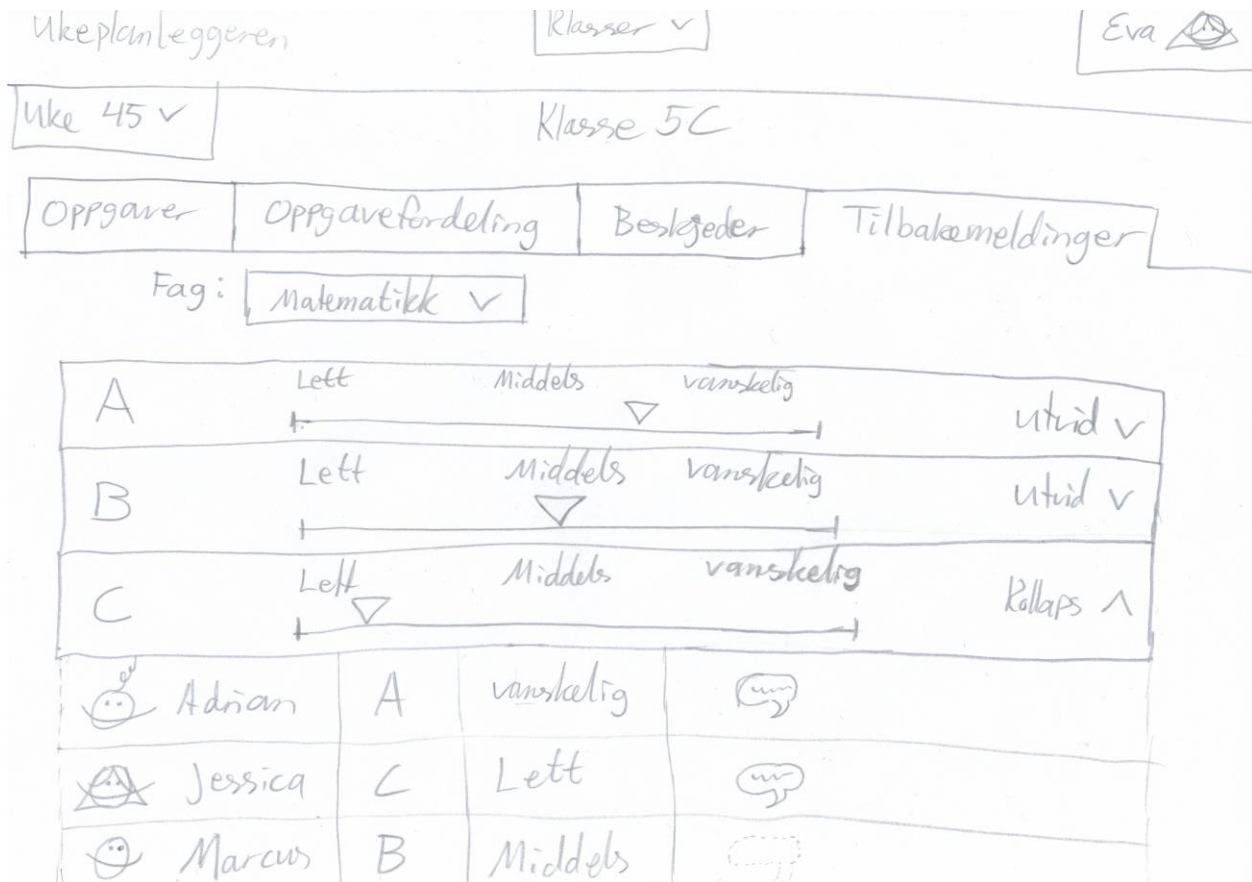 Ukeplanleggeren Klasser Eva
Uke 45 Klasse 5C
Oppgaver Oppgavefordeling Beskjeder Tilbakemeldinger
Fag: Matematikk
Lett Middels vanskelig
A Utvid
Lett Middels vanskelig
B Utvid
Lett Middels vanskelig
C Kollaps
Adrian A vanskelig
Jessica C Lett
Marcus B Middels